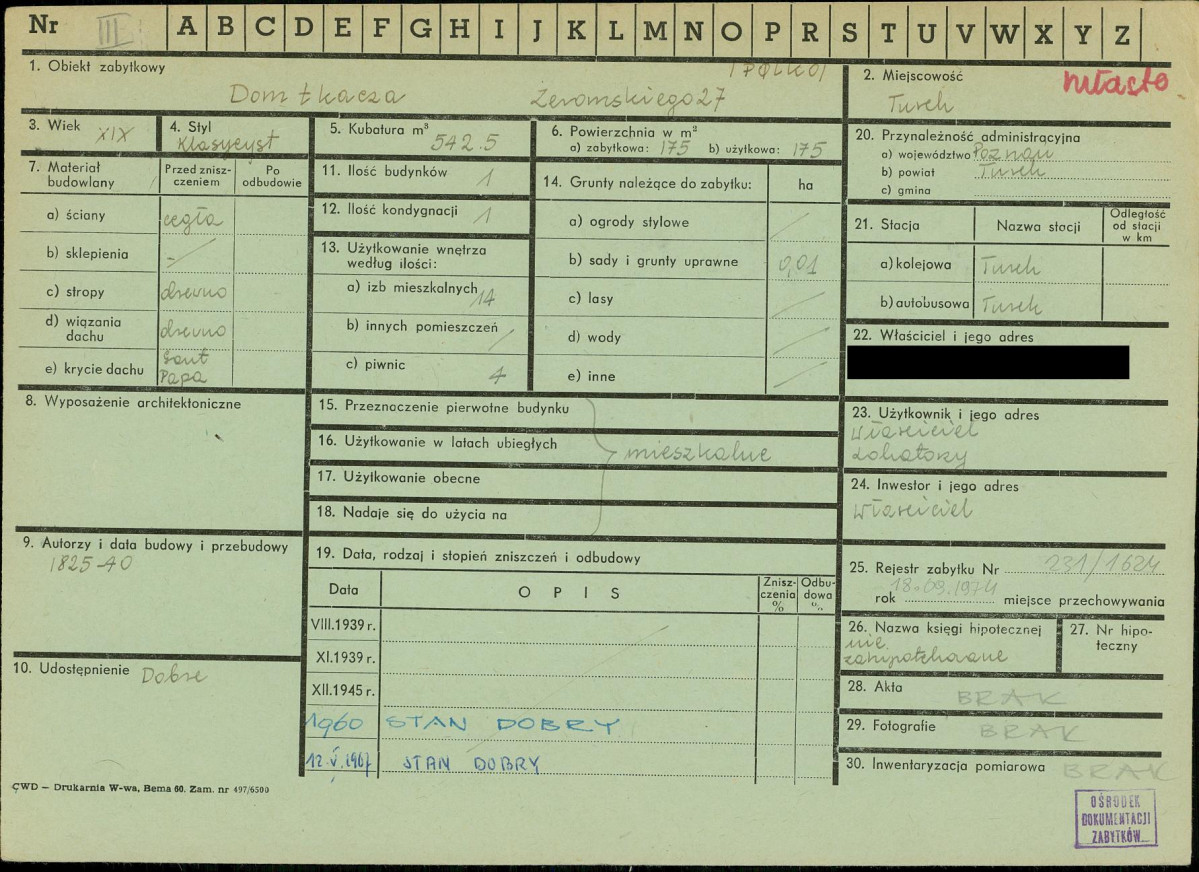 Nr III A B C D E F G H I J K L M N O P R S T U V W X Y Z
1. Obiekt zabytkowy
Dom tkacza Żeromskiego 27
2. Miejscowość miasto
Turek
3. Wiek XIX
4. Styl
Klasycyst
5. Kubatura m³ 542.5
6. Powierzchnia w m²
a) zabytkowa: 175 b) użytkowa: 175
7. Materiał budowlany
Przed znisz-
czeniem
Po
odbudowie
a) ściany cegła
b) sklepienia –
c) stropy drewno
d) wiązania
dachu drewno
e) krycie dachu Gont
Papa
8. Wyposażenie architektoniczne
9. Autorzy i data budowy i przebudowy
1825-40
10. Udostępnienie Dobre
11. Ilość budynków 1
12. Ilość kondygnacji 1
13. Użytkowanie wnętrza
według ilości:
a) izb mieszkalnych 14
b) innych pomieszczeń /
c) piwnic 4
14. Grunty należące do zabytku: ha
a) ogrody stylowe /
b) sady i grunty uprawne 0,01
c) lasy /
d) wody /
e) inne /
15. Przeznaczenie pierwotne budynku
16. Użytkowanie w latach ubiegłych
mieszkalne
17. Użytkowanie obecne
18. Nadaje się do użycia na
19. Data, rodzaj i stopień zniszczeń i odbudowy
Data OPIS
Znisz-
czenia
%
Odbu-
dowa
%
VIII.1939 r.
XI.1939 r.
XII.1945 r.
1960 STAN DOBRY
12.V.1967 STAN DOBRY
20. Przynależność administracyjna
a) województwo Poznań
b) powiat Turek
c) gmina
21. Stacja
Nazwa stacji
Odległość
od stacji
w km
a) kolejowa Turek
b) autobusowa Turek
22. Właściciel i jego adres
23. Użytkownik i jego adres
właściciel
lokatorzy
24. Inwestor i jego adres
właściciel
25. Rejestr zabytku Nr 231/1624
rok 18.09.1974 miejsce przechowywania
26. Nazwa księgi hipotecznej
nie
zahipotekowane
27. Nr hipo-
teczny
28. Akta BRAK
29. Fotografie BRAK
30. Inwentaryzacja pomiarowa BRAK
CWD — Drukarnia W-wa, Bema 60. Zam. nr 497/6500
OŚRODEK
DOKUMENTACJI
ZABYTKÓW